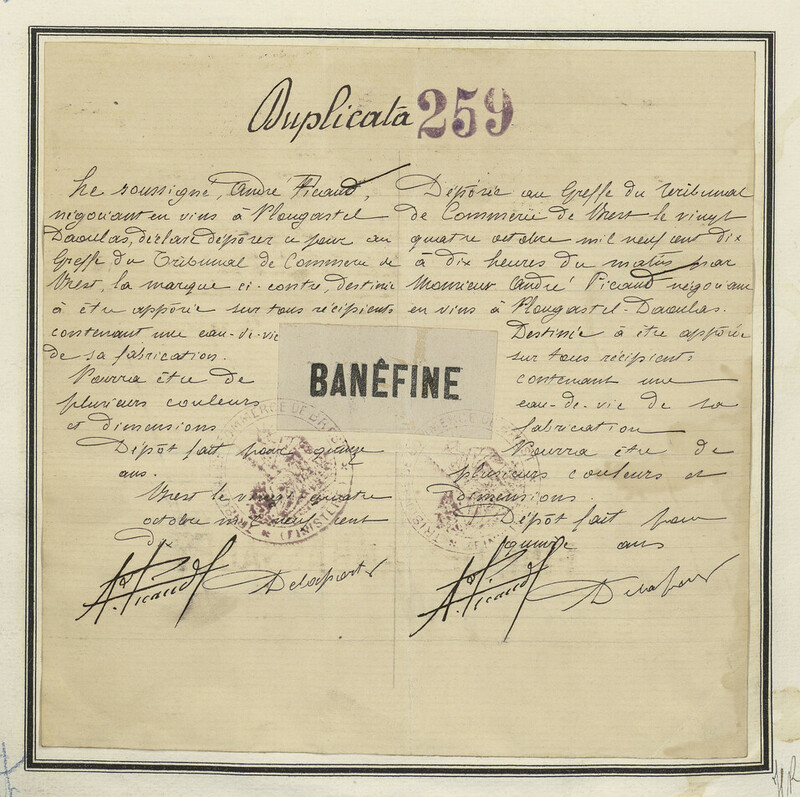 Duplicata 259
Le soussigné, André Picaud,
négociant en vins à Plougastel
Daoulas, déclare déposer ce jour au
Greffe du Tribunal de Commerce de
Brest, la marque ci-contre, destinée
à être apposée sur tous récipients
contenant une eau-de-vie
de sa fabrication.
Pourra être de
plusieurs couleurs
et dimensions
Dépôt fait pour quinze
ans.
Brest le vingt quatre
octobre mil neuf cent
dix
A. Picaud Delaporte
BANÊFINE
Déposée au Greffe du Tribunal
de Commerce de Brest le vingt
quatre octobre mil neuf cent dix
à dix heures du matin par
Monsieur André Picaud négociant
en vins à Plougastel-Daoulas.
Destinée à être apposée
sur tous récipients
contenant une
eau-de-vie de sa
fabrication
Pourra être de
plusieurs couleurs et
dimensions.
Dépôt fait pour
quinze ans
A. Picaud Delaporte
COMMERCE DE BREST
(FINISTÈRE)